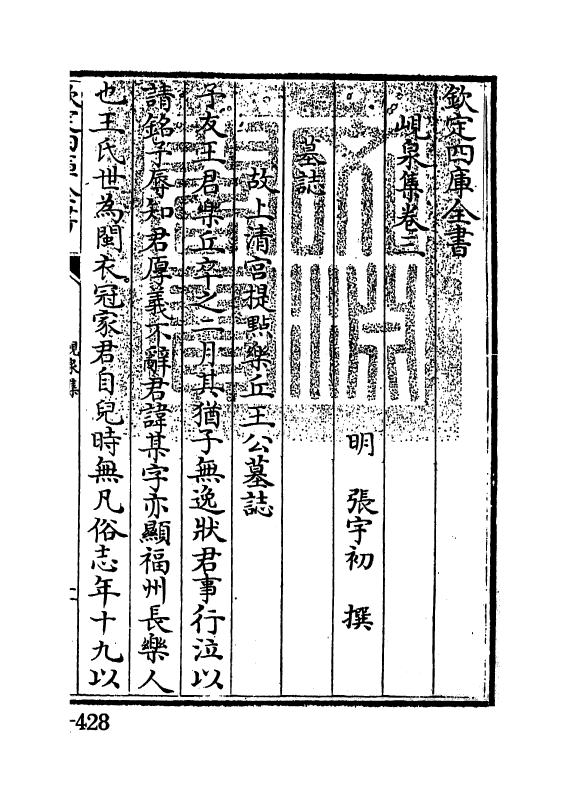 欽定四庫全書
峴泉集卷三
明　張宇初　撰
墓誌
故上清宫提點樂丘王公墓誌
予友王君樂丘卒之二月其猶子無逸狀君事行泣以
請銘予辱知君厚義不辭君諱某字亦顯福州長樂人
也王氏世為閩衣冠家君自兒時無凡俗志年十九以
欽定四庫全書
峴泉集
-428